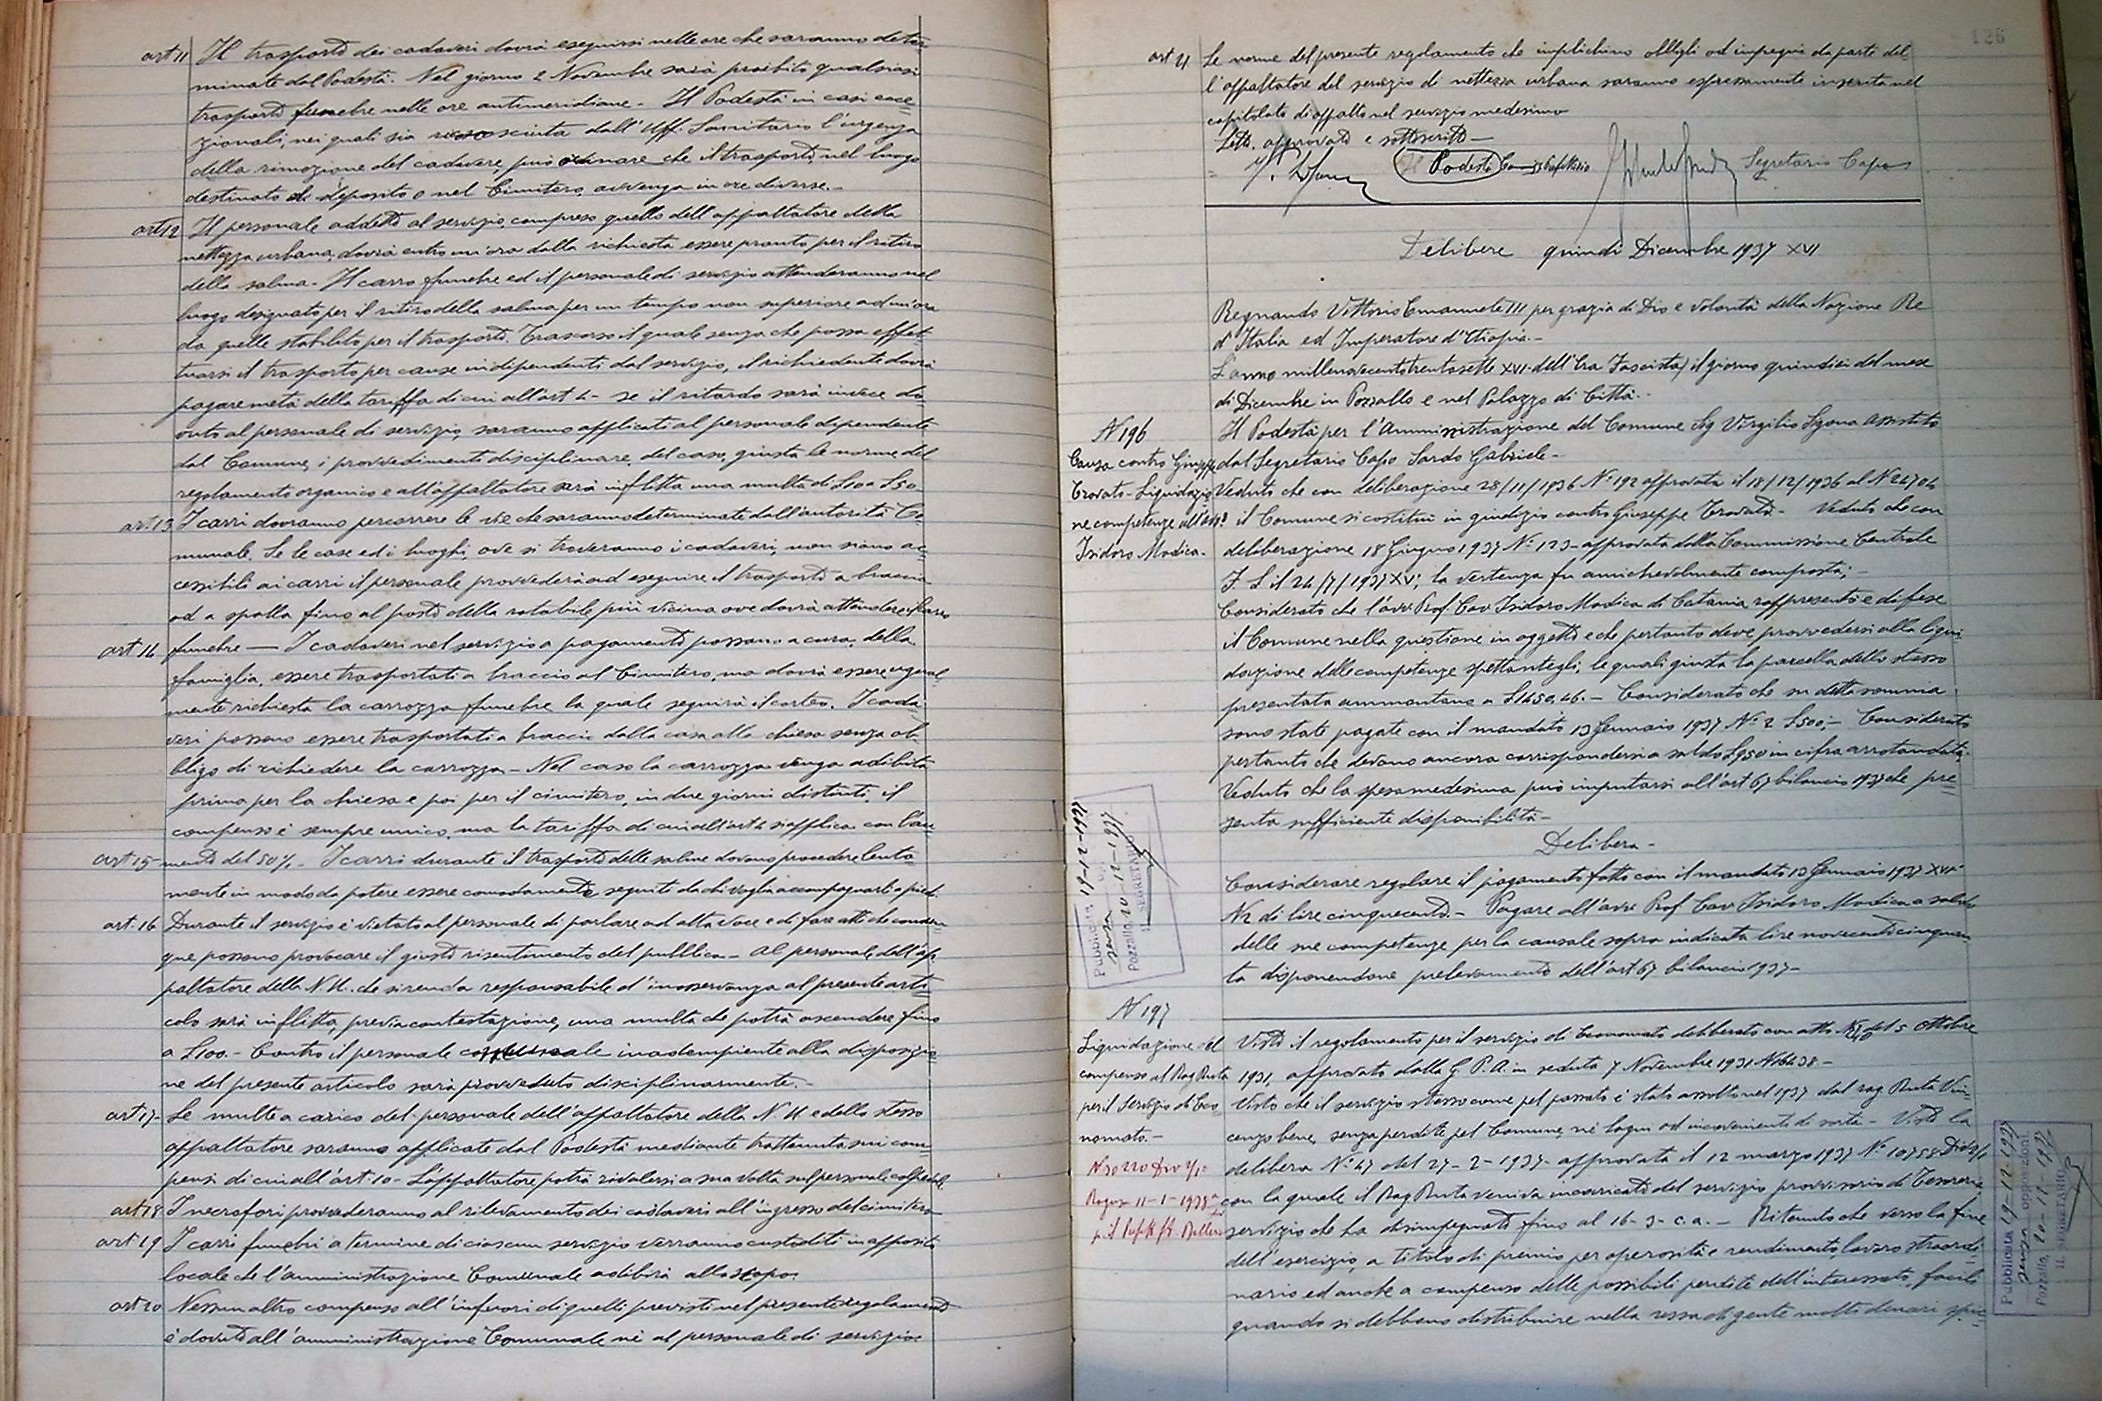 art 11 Il trasporto dei cadaveri dovrà eseguirsi nelle ore che saranno deter
minate dal Podestà. Nel giorno 2 Novembre sarà proibito qualsiasi
trasporto funebre nelle ore antimeridiane - Il Podestà in casi ecce
zionali, nei quali sia riconosciuta dall'Uff. Sanitario l'urgenza
della rimozione del cadavere, può ordinare che il trasporto nel luogo
destinato di deposito o nel Cimitero avvenga in ore diverse. -
art 12 Il personale addetto al servizio, compreso quello dell'appaltatore della
nettezza urbana, dovrà entro un'ora dalla richiesta essere pronto per il ritiro
della salma - Il carro funebre ed il personale di servizio attenderanno nel
luogo designato per il ritiro della salma per un tempo non superiore ad un'ora
da quello stabilito per il trasporto. Trascorso il quale senza che possa effet
tuarsi il trasporto per cause indipendenti dal servizio, il richiedente dovrà
pagare metà della tariffa di cui all'art 4 - se il ritardo sarà invece do
vuto al personale di servizio, saranno applicati al personale dipendente
dal Comune, i provvedimenti disciplinare, del caso, giusta le norme del
regolamento organico e all'appaltatore sarà inflitta una multa di L 10 a L 50
art 13 I carri dovranno percorrere le vie che saranno determinate dall'autorità Co
munale. Se le case ed i luoghi ove si troveranno i cadaveri, non siano ac
cessibili ai carri il personale provvederà ad eseguire il trasporto a braccia
od a spalla fino al posto della rotabile più vicina ove dovrà attendere il carro
art 14 funebre — I cadaveri nel servizio a pagamento possano a cura, della
famiglia, essere trasportati a braccio al Cimitero, ma dovrà essere ugual
mente richiesta la carrozza funebre la quale seguirà il corteo. I cada
veri possono essere trasportati a braccio dalla casa alla chiesa senza ob
bligo di richiedere la carrozza - Nel caso la carrozza venga adibita
prima per la chiesa e poi per il cimitero, in due giorni distinti, il
compenso è sempre unico, ma la tariffa di cui all'art 4 si applica con l'au
art 15 mento del 50% - I carri durante il trasporto delle salme devono procedere lenta
mente in modo da potere essere comodamente seguiti da chi voglia accompagnarli a piedi.
art. 16 Durante il servizio è vietato al personale di parlare ad alta voce e di fare atti che comun
que possono provocare il giusto risentimento del pubblico - Al personale dell'ap
paltatore della N.U. che si renda responsabile d'inosservanza al presente arti
colo sarà inflitta, previa contestazione, una multa che potrà ascendere fino
a L 100. - Contro il personale inadempiente alla disposizio
ne del presente articolo sarà provveduto disciplinarmente. -
art 17 - Le multe a carico del personale dell'appaltatore della N.U. e dello stesso
appaltatore saranno applicate dal Podestà mediante trattenuta sui com
pensi di cui all'art. 10 - L'appaltatore potrà rivalersi a sua volta sul personale colpevole
art 18 I necrofori provvederanno al rilevamento dei cadaveri all'ingresso del cimitero
art 19 I carri funebri a termine di ciascun servizio verranno custoditi in apposito
locale che l'amministrazione Comunale adibirà allo scopo.
art 20 Nessun altro compenso all'infuori di quelli previsti nel presente regolamento
è dovuto all'amministrazione Comunale nè al personale di servizio.
126
art 21 Le norme del presente regolamento che implichino obblighi ed impegni da parte del
l'appaltatore del servizio di nettezza urbana saranno espressamente inserite nel
capitolato di appalto nel servizio medesimo
Letto, approvato e sottoscritto —
Il Podestà Comm Prefettizio Segretario Capo
Delibere quindi Dicembre 1937 XVI
Regnando Vittorio Emanuele III per grazia di Dio e volontà della Nazione Re
d'Italia ed Imperatore d'Etiopia. -
L'anno millenovecentotrentasette XVI dell'Era Fascista, il giorno quindici del mese
di Dicembre in Pozzallo e nel Palazzo di Città. -
N 196
Causa contro Giuseppe
Trovato - Liquidazio
ne competenze all'Avv.
Isidoro Modica. -
Il Podestà per l'Amministrazione del Comune Sig Virgilio Lgona assistito
dal Segretario Capo Sardo Gabriele -
Veduto che con deliberazione 28/11/1936 N° 192 approvata il 18/12/1936 al N 24704
il Comune si costituì in giudizio contro Giuseppe Trovato - Veduto che con
deliberazione 18 Giugno 1937 N° 123 - approvata dalla Commissione Centrale
F. L il 24/7/1937 XV; la vertenza fu amichevolmente composta; -
Considerato che l'avv. Prof. Cav Isidoro Modica di Catania rappresentò e difese
il Comune nella questione in oggetto e che pertanto deve provvedersi alla liqui
dazione delle competenze spettantegli, le quali giusta la parcella dello stesso
presentata ammontano a L 1450,46. - Considerato che su detta somma
sono state pagate con il mandato 13 Gennaio 1937 N° 2 L 500; - Considerato
pertanto che devono ancora corrispondersi a saldo L 950 in cifra arrotondata.
Veduto che la spesa medesima può imputarsi all'art 67 bilancio 1937 che pre
senta sufficiente disponibilità -
Delibera -
Considerare regolare il pagamento fatto con il mandato 13 Gennaio 1937 XV°
N 2 di lire cinquecento. - Pagare all'avv Prof Cav Isidoro Modica a saldo
delle sue competenze per la causale sopra indicata lire novecentocinquan
ta disponendone prelevamento dell'art. 67 bilancio 1937 -
Pubblicata
senza
Pozzallo 20-12-1937
IL SEGRETARIO
N 197
Liquidazione del
compenso al Rag Ruta
per il Servizio di Eco
nomato. -
N 30220 Div 2/1
Ragusa 11-1-1938
Visto il regolamento per il servizio di Economato deliberato con atto N del 5 ottobre
1931, approvato dalla G. P. A. in seduta 7 Novembre 1931 N 16438 -
Visto che il servizio stesso come pel passato è stato assolto nel 1937 dal rag Ruta Vin
cenzo bene, senza perdite pel Comune, nè lagni od inconvenienti di sorta. - Vista la
delibera N° 47 del 27-2-1937 - approvata il 12 marzo 1937 N° 10758 Div 2/1
con la quale il Rag Ruta veniva incaricato del servizio provvisorio di Tesoreria
servizio che ha disimpegnato fino al 16-3-c.a. - Ritenuto che verso la fine
dell'esercizio, a titolo di premio per operosità e rendimento, lavoro straordi
nario ed anche a compenso delle possibili perdite dell'interessato, facili
quando si debbano distribuire nella ressa di gente molti denari spic
Pubblicata 19-12-1937
senza opposizioni
Pozzallo, 20-12-1937
IL SEGRETARIO